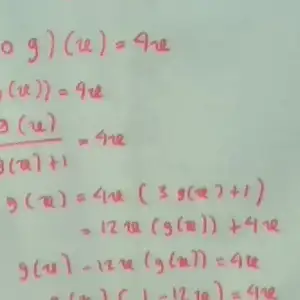 o g)(x) = 4x
(x)) = 4x
g(x)
g(x)+1 = 4x
g(x) = 4x ( 3 g(x) +1)
= 12x (g(x)) + 4x
g(x) - 12x (g(x)) = 4x
g(x) ( 1 - 12x) = 4x